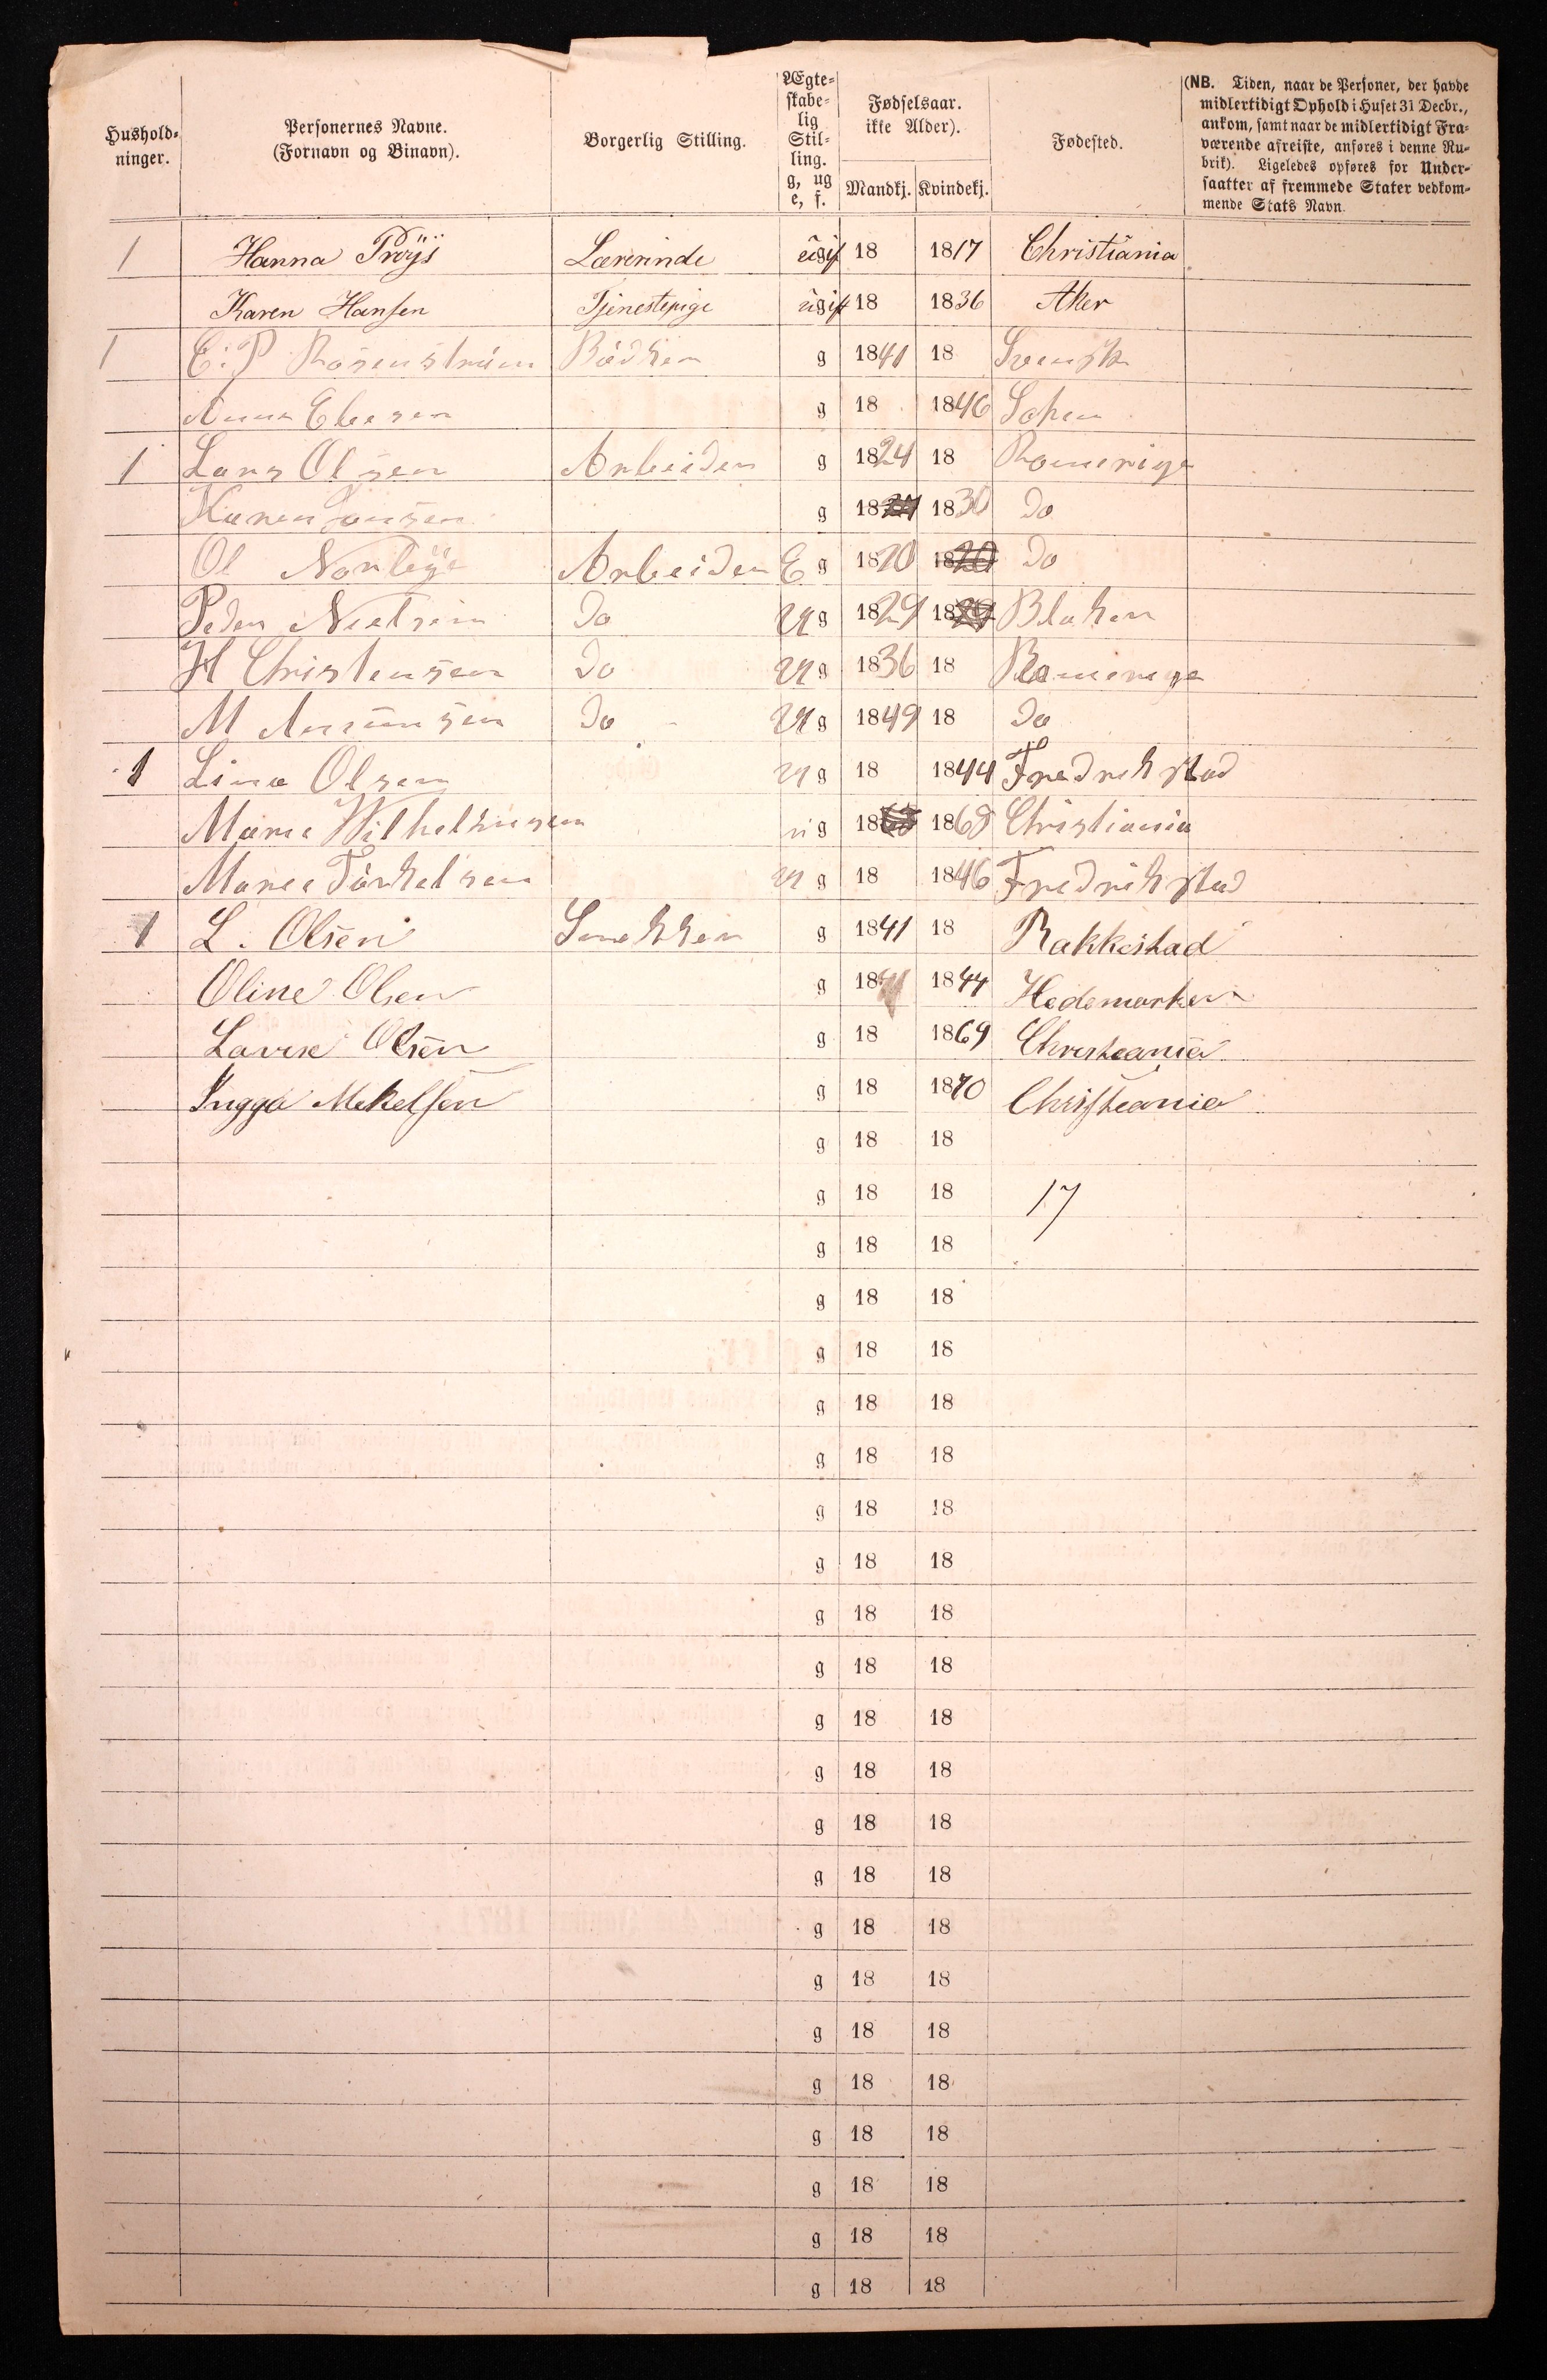 Hushold-
ninger.
Personernes Navne.
(Fornavn og Binavn).
Borgerlig Stilling.
Ægte-
skabe-
lig
Stil-
ling.
g, ug
e, f.
Fødselsaar.
ikke Alder).
Mandkj. Kvindekj.
Fødested.
(NB. Tiden, naar de Personer, der havde
midlertidigt Ophold i Huset 31 Decbr.,
ankom, samt naar de midlertidigt Fra-
værende afreiste, anføres i denne Ru-
brik). Ligeledes opføres for Under-
saatter af fremmede Stater vedkom-
mende Stats Navn.
1 Hanna Pröÿs Lærerinde ugift 18 1817 Christiania
Karen Hansen Tjenestepige ugift 18 1836 Aker
1 C. P Rosenstrøm Bødker g 1841 18 Svensk
Anna g 18 1846
1 Lars Olsen Arbeider g 1824 18 Romerige
Karen g 18 1830 Do
Ol Arbeider E g 1820 18 Do
Peder Nielsen Do u g 1829 18 Blaker
H Christensen Do u g 1836 18 Romerige
M Do u g 1849 18 Do
1 Lina Olsen u g 18 1844 Fredrikstad
Marie Wilhelmsen u g 18 1868 Christiania
Maree Torkelsen u g 18 1846 Fredrikstad
1 L. Olsen Snekker g 1841 18 Rakkestad
Oline Olsen g 18 1844 Hedemarken
Lovise Olsen g 18 1869 Christeania
Ingga Mekelsen g 18 1870 Christeania
g 18 18
g 18 18 17
g 18 18
g 18 18
g 18 18
g 18 18
g 18 18
g 18 18
g 18 18
g 18 18
g 18 18
g 18 18
g 18 18
g 18 18
g 18 18
g 18 18
g 18 18
g 18 18
g 18 18
g 18 18
g 18 18
g 18 18
g 18 18